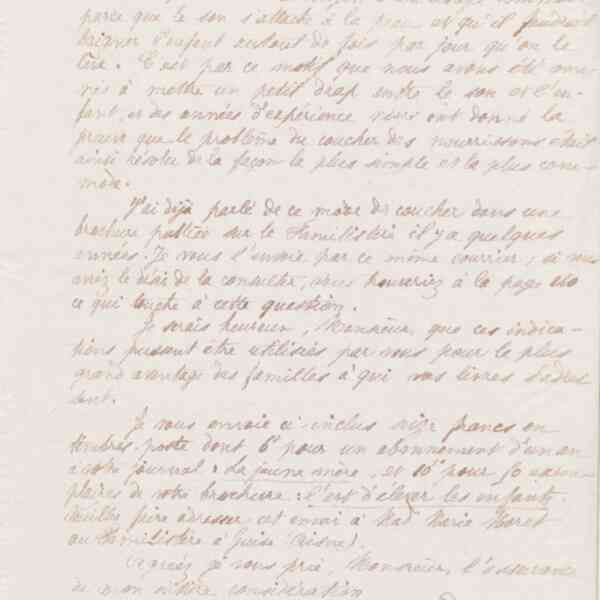 parce que le son s'attache à la peau et qu'il faudrait
baigner l'enfant autant de fois par jour qu'on le
lève. C'est par ce motif que nous avons été ame-
nés à mettre un petit drap entre le son et l'en-
fant, et des années d'expérience nous ont donné la
preuve que le problème du coucher des nourrissons était
ainsi résolu de la façon la plus simple et la plus com-
mode.
J'ai déjà parlé de ce mode de coucher dans une
brochure publiée sur le Familistère il y a quelques
années. Je vous l'envoie par ce même courrier; si vous
avez le désir de la consulter, vous trouverez à la page
ce qui touche à cette question.
Je serais heureux, Monsieur, que ces indica-
tions puissent être utilisées par vous pour le plus
grand avantage des familles à qui vos livres s'adres
sent.
Je vous envoie ci-inclus seize francs en
timbres-poste dont 6f pour un abonnement d'un an
à votre journal: La jeune mère, et 10f pour 50 exem-
plaires de votre brochure: l'art d'élever les enfants.
Veuillez faire adresser cet envoi à Made Marie Moret
au Familistère à Guise (Aisne).
Agréez je vous prie, Monsieur, l'assurance
de mon entière considération